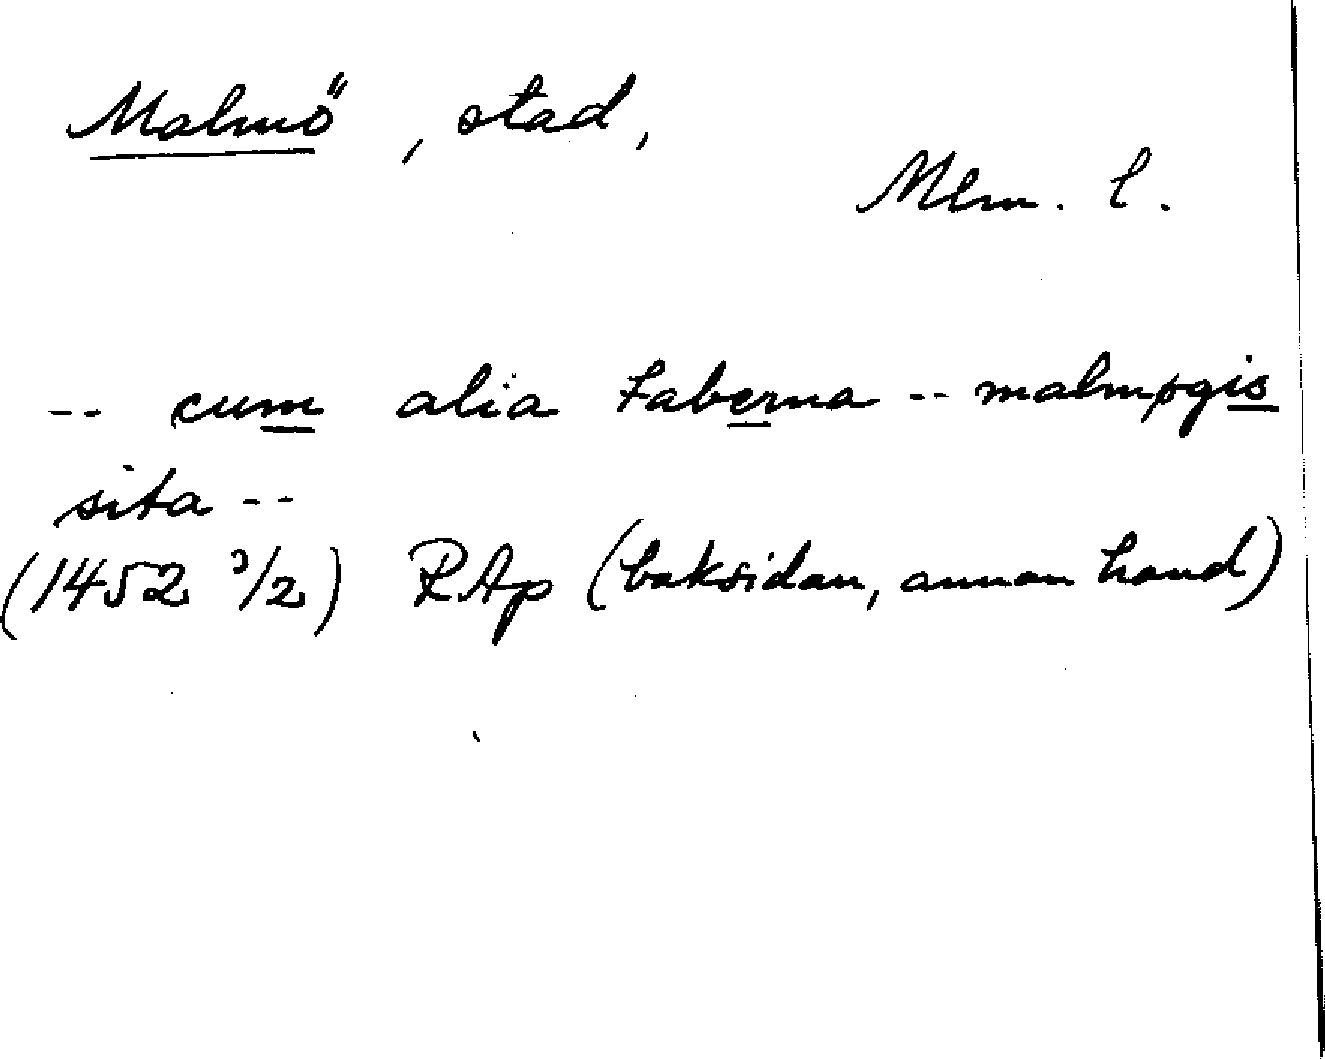 Malmö, stad,
Mlm. l.
-- cum alia taberna -- malmøgis
sita --
(1452 3/2) RAp (baksidan, annan hand)